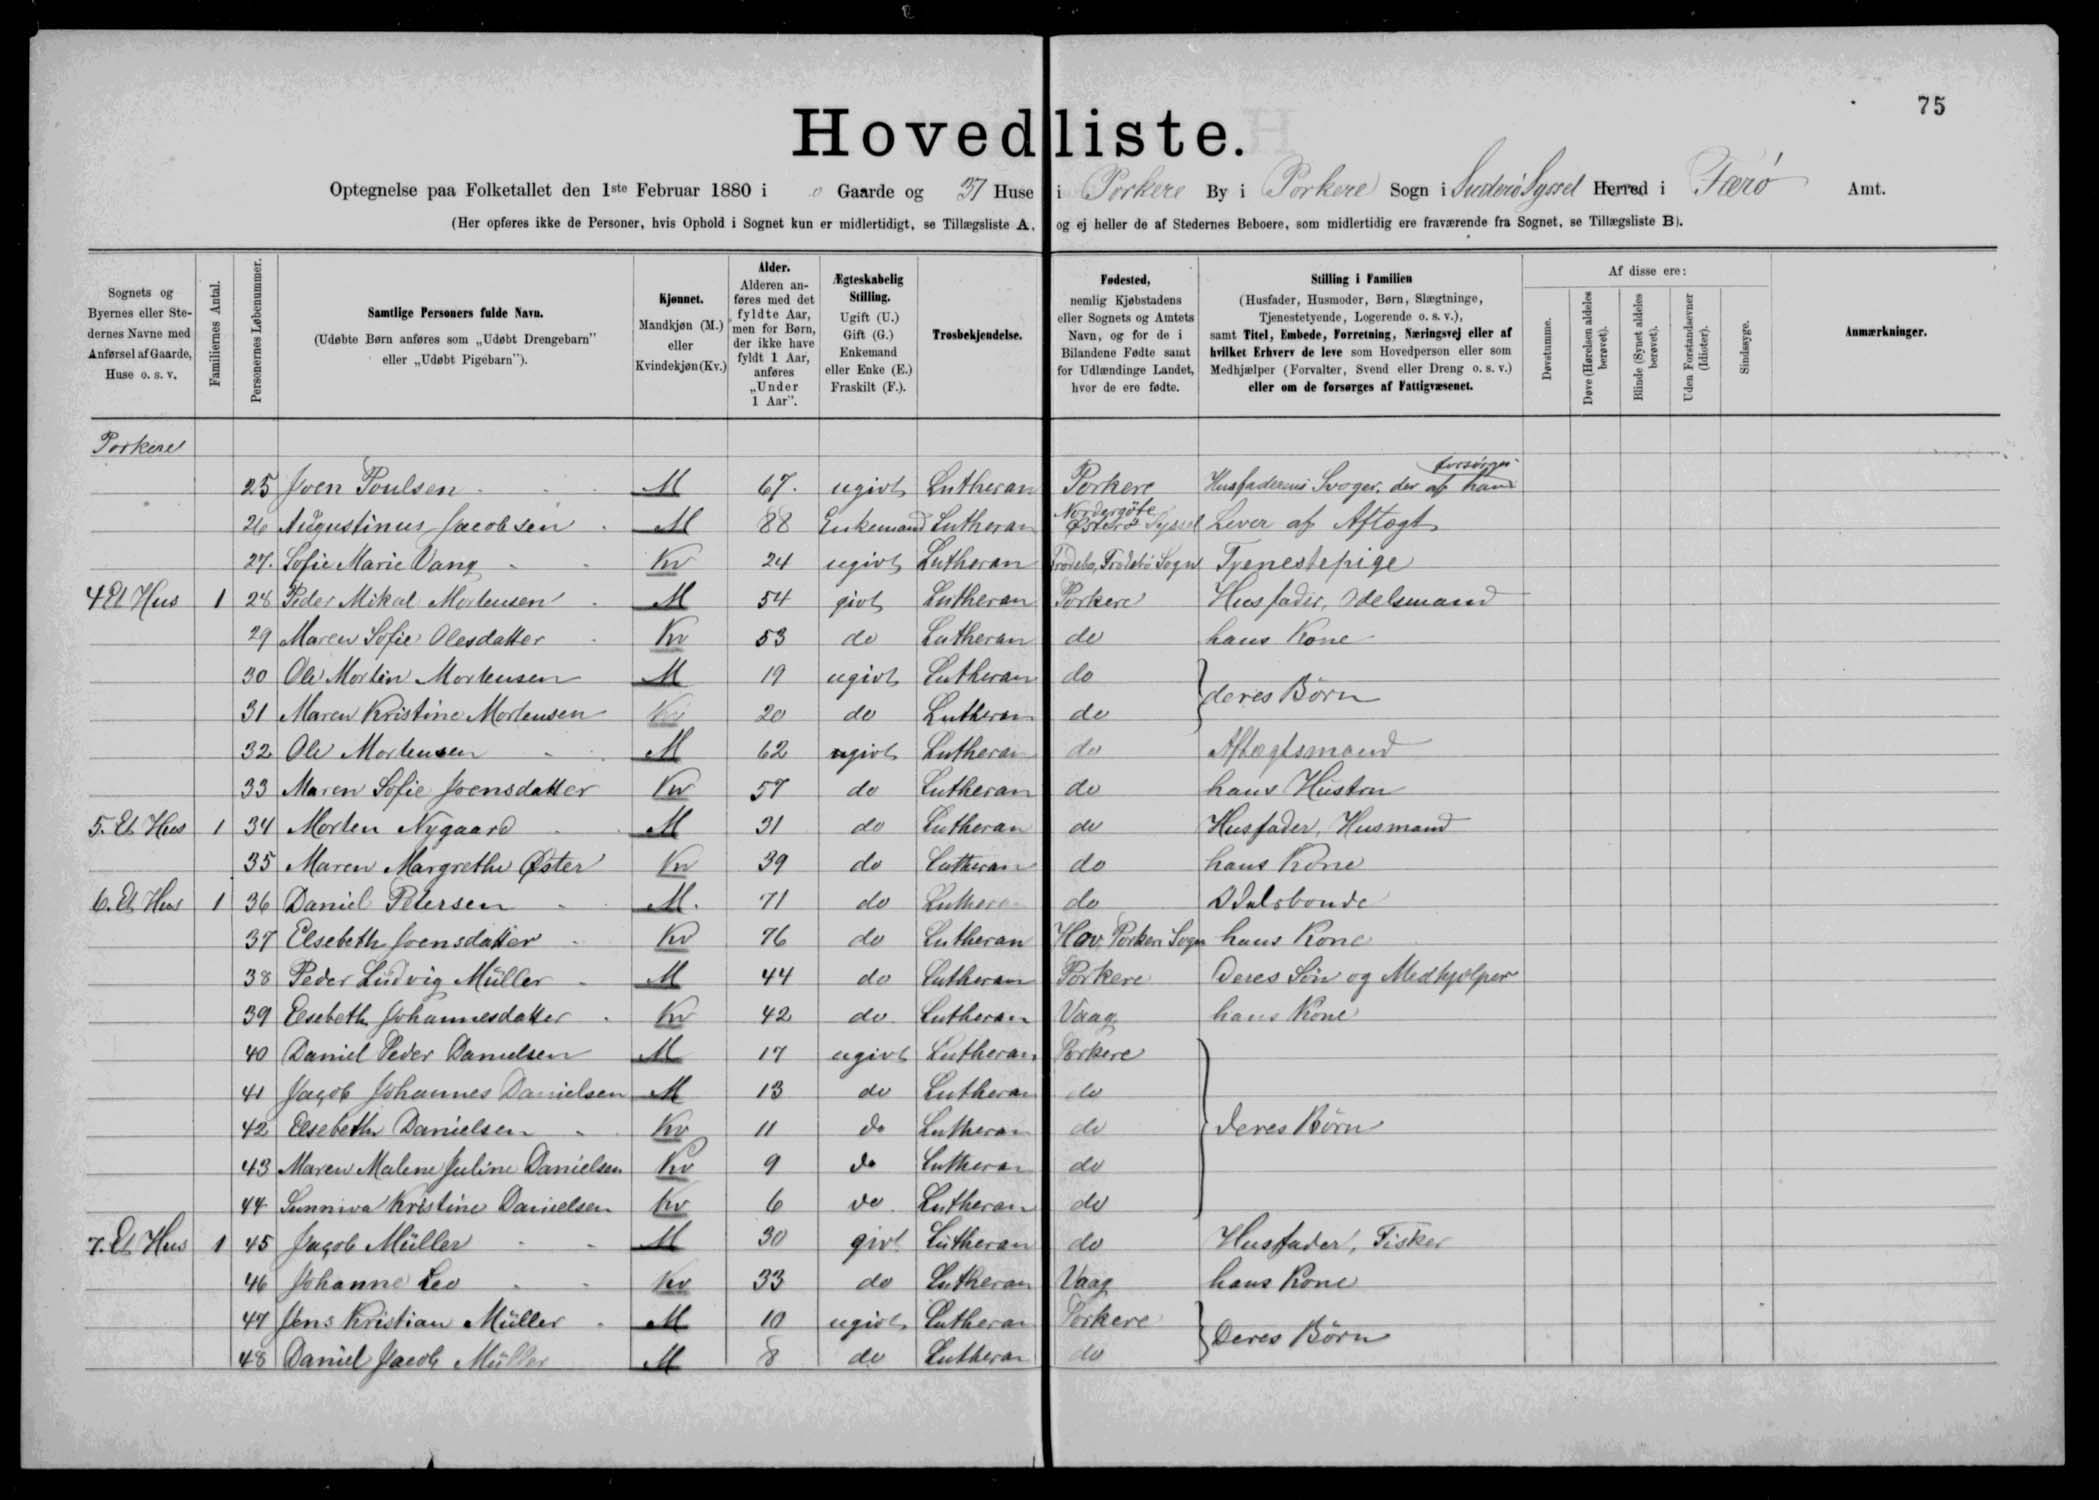 75
Hovedliste.
Optegnelse paa Folketallet den 1ste Februar 1880 i 0 Gaarde og 37 Huse i Porkere By i Porkere Sogn i Suderø Syssel Herred i Færø Amt.
(Her opføres ikke de Personer, hvis Ophold i Sognet kun er midlertidigt, se Tillægsliste A, og ej heller de af Stedernes Beboere, som midlertidig ere fraværende fra Sognet, se Tillægsliste B).
Sognets og Byernes eller Stedernes Navne med Anførsel af Gaarde, Huse o. s. v.
Familiernes Antal.
Personernes Løbenummer.
Samtlige Personers fulde Navn.
(Udøbte Børn anføres som „Udøbt Drengebarn" eller „Udøbt Pigebarn").
Kjønnet.
Mandkjøn (M.) eller Kvindekjøn (Kv.)
Alder.
Alderen anføres med det fyldte Aar, men for Børn, der ikke have fyldt 1 Aar, anføres „Under 1 Aar".
Ægteskabelig Stilling.
Ugift (U.) Gift (G.) Enkemand eller Enke (E.) Fraskilt (F.).
Trosbekjendelse.
Fødested,
nemlig Kjøbstadens eller Sognets og Amtets Navn, og for de i Bilandene Fødte samt for Udlændinge Landet, hvor de ere fødte.
Stilling i Familien
(Husfader, Husmoder, Børn, Slægtninge, Tjenestetyende, Logerende o. s. v.), samt Titel, Embede, Forretning, Næringsvej eller af hvilket Erhverv de leve som Hovedperson eller som Medhjælper (Forvalter, Svend eller Dreng o. s. v.) eller om de forsørges af Fattigvæsenet.
Af disse ere:
Døvstumme.
Døve (Hørelsen aldeles berøvet).
Blinde (Synet aldeles berøvet).
Uden Forstandsevner (Idioter).
Sindssyge.
Anmærkninger.
Porkere
25 Joen Poulsen M 67 ugivt Lutheran Porkere Husfaderens Svoger, der af ham forsørges
26 Augustinus Jacobsen M 88 Enkemand Lutheran Nordergöte Østerø Syssel Lever af Aftægt
27. Sofie Marie Vang Kv 24 ugivt Lutheran Frodebø, Frodebø Sogn Tjenestepige
4 Et Hus 1 28 Peder Mikal Mortensen M 54 givt Lutheran Porkere Husfader, Odelsmand
29 Maren Sofie Olesdatter Kv 53 do Lutheran do hans Kone
30 Ole Morten Mortensen M 19 ugivt Lutheran do
31 Maren Kristine Mortensen Kv 20 do Lutheran do deres Børn
32 Ole Mortensen M 62 ugivt Lutheran do Aftægtsmand
33 Maren Sofie Joensdatter Kv 57 do Lutheran do hans Hustru
5. Et Hus 1 34 Morten Nygaard M 31 do Lutheran do Husfader, Husmand
35 Maren Margrethe Øster Kv 39 do Lutheran do hans Kone
6. Et Hus 1 36 Daniel Petersen M. 71 do Lutheran do Odelsbonde
37 Elsebeth Joensdatter Kv 76 do Lutheran Hov, Porkere Sogn hans Kone
38 Peder Ludvig Müller M 44 do Lutheran Porkere Deres Søn og Medhjelper
39 Elsebeth Johannesdatter Kv 42 do Lutheran Vaag hans Kone
40 Daniel Peder Danielsen M 17 ugivt Lutheran Porkere
41 Jacob Johannes Danielsen M 13 do Lutheran do
42 Elsebeth Danielsen Kv 11 do Lutheran do deres Børn
43 Maren Malene Juline Danielsen Kv 9 do Lutheran do
44 Sunniva Kristine Danielsen Kv 6 do Lutheran do
7. Et Hus 1 45 Jacob Müller M 30 givt Lutheran do Husfader, Fisker
46 Johanne Leo Kv 33 do Lutheran Vaag hans Kone
47 Jens Kristian Müller M 10 ugivt Lutheran Porkere
48 Daniel Jacob Müller M 8 do Lutheran do Deres Børn